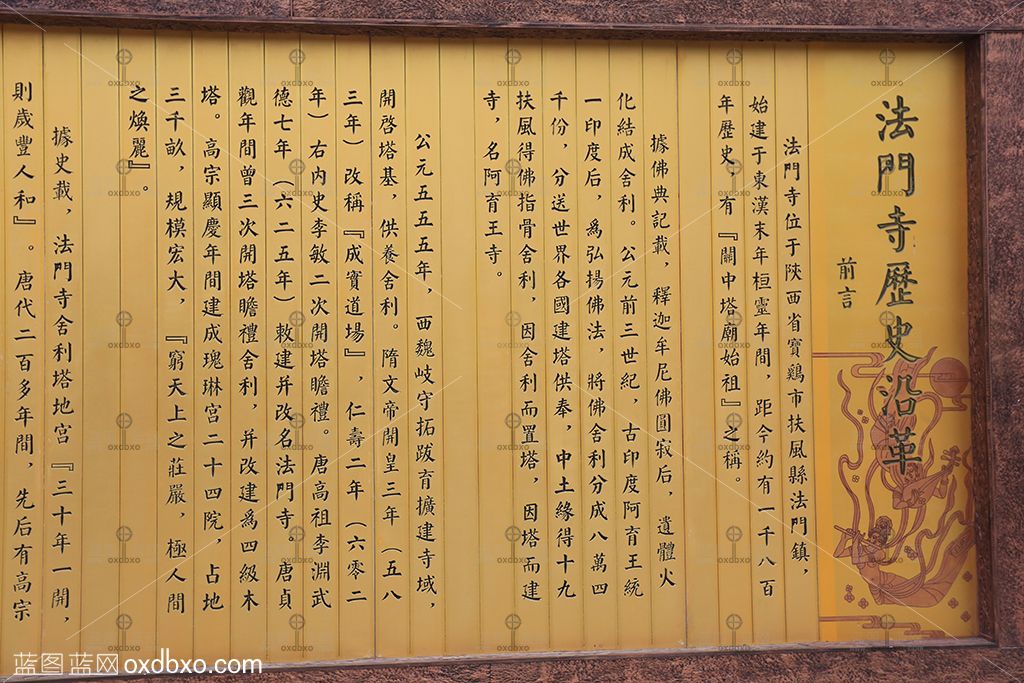 法門寺歷史沿革
前言
法門寺位于陝西省寶鷄市扶風縣法門鎮，
始建于東漢末年桓靈年間，距今約有一千八百
年歷史，有『關中塔廟始祖』之稱。
據佛典記載，釋迦牟尼佛圓寂后，遺體火
化結成舍利。公元前三世紀，古印度阿育王統
一印度后，爲弘揚佛法，將佛舍利分成八萬四
千份，分送世界各國建塔供奉，中土緣得十九
扶風得佛指骨舍利，因舍利而置塔，因塔而建
寺，名阿育王寺。
公元五五五年，西魏岐守拓跋育擴建寺域，
開啓塔基，供養舍利。隋文帝開皇三年（五八
三年）改稱『成實道場』，仁壽二年（六零二
年）右内史李敏二次開塔瞻禮。唐高祖李淵武
德七年（六二五年）敕建并改名法門寺。唐貞
觀年間曾三次開塔瞻禮舍利，并改建爲四級木
塔。高宗顯慶年間建成瑰琳宫二十四院，占地
三千畝，規模宏大，『窮天上之莊嚴，極人間
之煥麗』。
據史載，法門寺舍利塔地宫『三十年一開，
則歲豐人和』。唐代二百多年間，先后有高宗
蓝图蓝网 oxdbxo.com